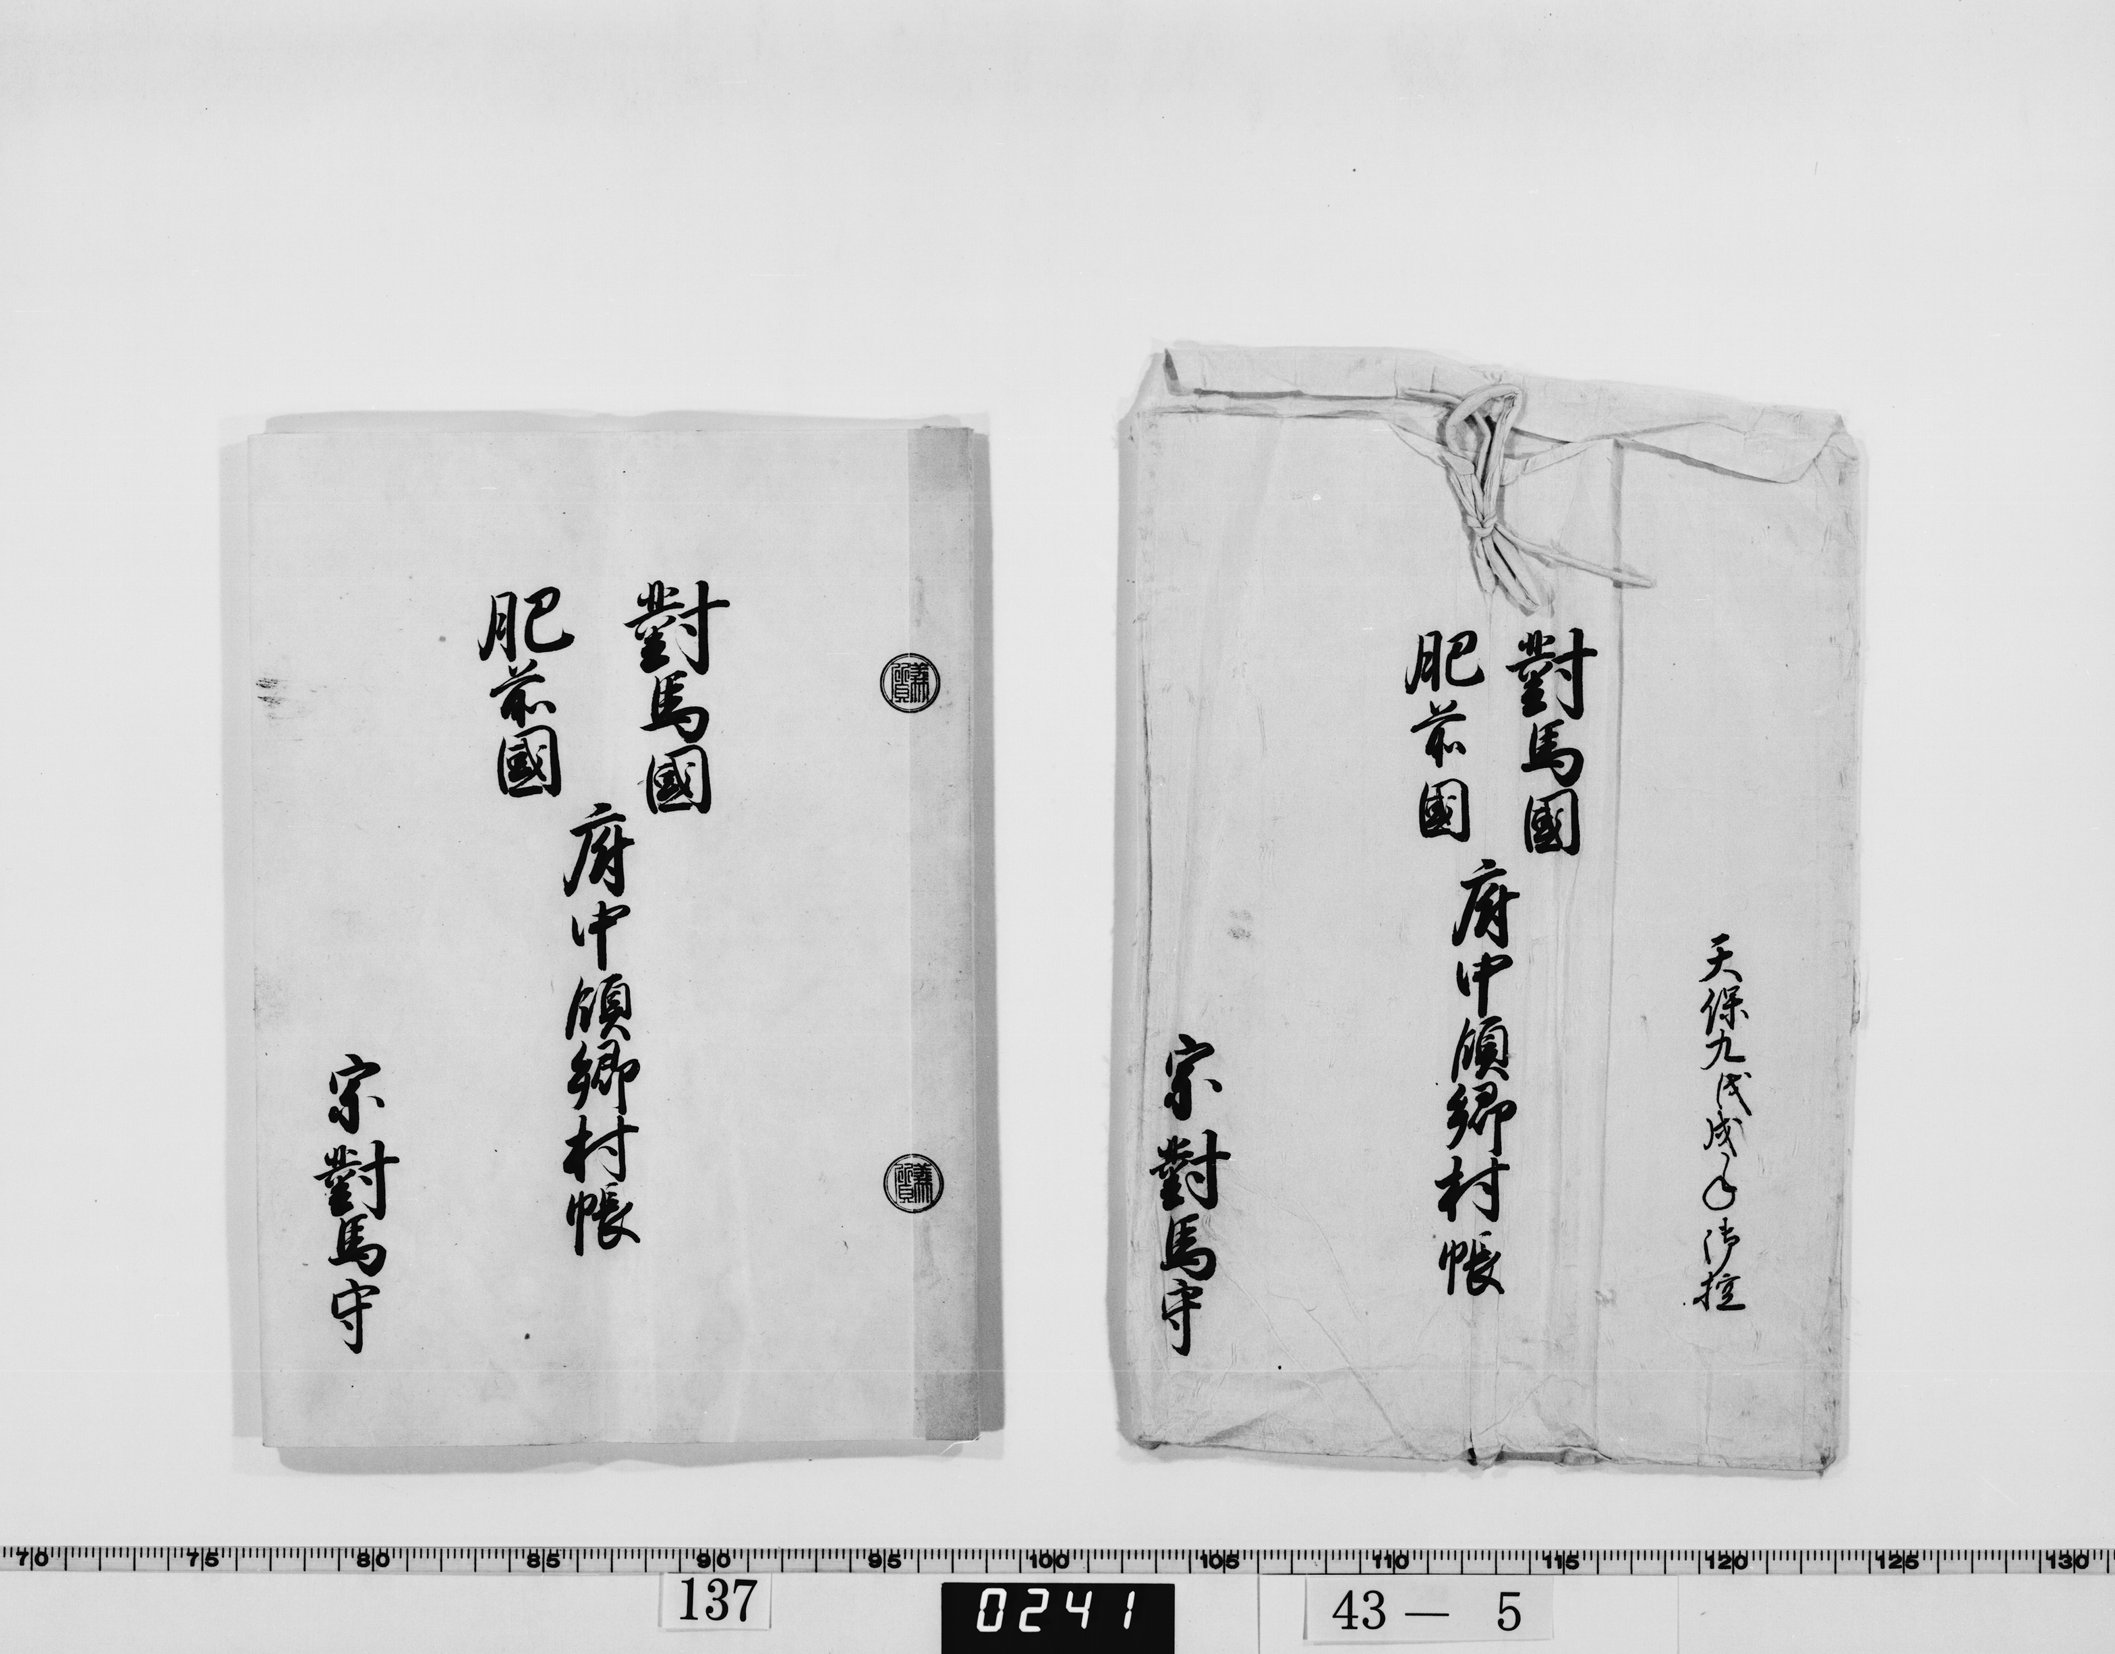 天保九戊戌年御控
對馬國
肥前國
府中領郷村帳
宗對馬守
對馬國
肥前國
府中領郷村帳
宗對馬守
義質
義質
70 75 80 85 90 95 100 105 110 115 120 125 130
137
0241
43－ 5